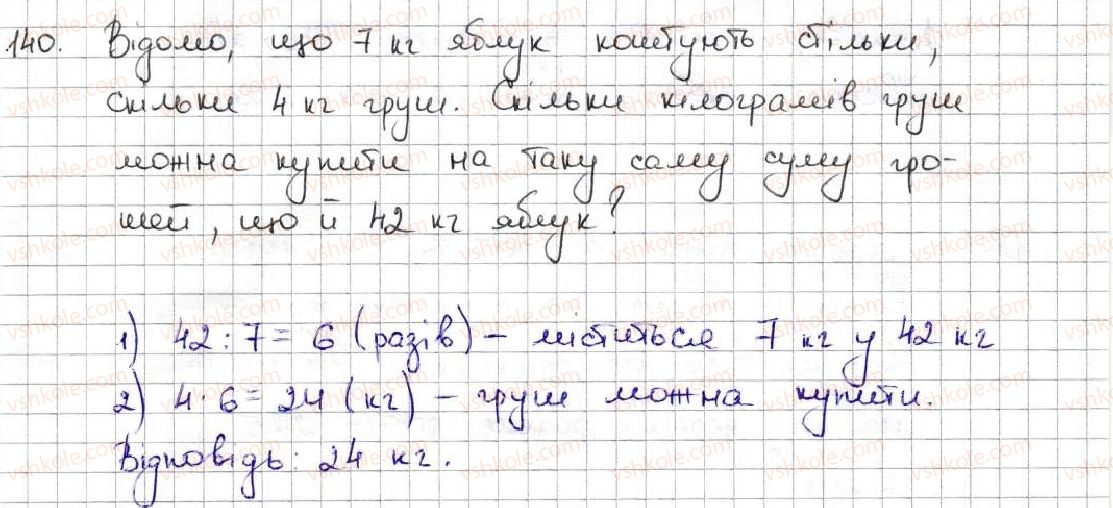 140. Відомо, що 7 кг яблук коштують стільки,
скільки 4 кг груш. Скільки кілограмів груш
можна купити на таку саму суму гро-
шей, що й 42 кг яблук?
1) 42 : 7 = 6 (разів) – міститься 7 кг у 42 кг
2) 4 · 6 = 24 (кг) – груш можна купити.
Відповідь: 24 кг.